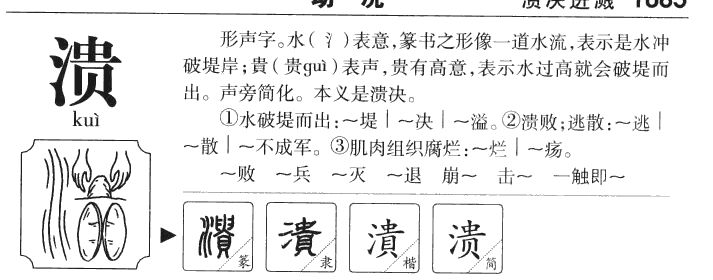 溃
kuì
形声字。水(氵)表意,篆书之形像一道水流,表示是水冲
破堤岸;貴(贵guì)表声,贵有高意,表示水过高就会破堤而
出。声旁简化。本义是溃决。
①水破堤而出:~堤|~决|~溢。②溃败;逃散:~逃|
~散|~不成军。③肌肉组织腐烂:~烂|~疡。
~败 ~兵 ~灭 ~退 崩~ 击~ 一触即~
潰 篆 潰 隶 潰 楷 溃 简